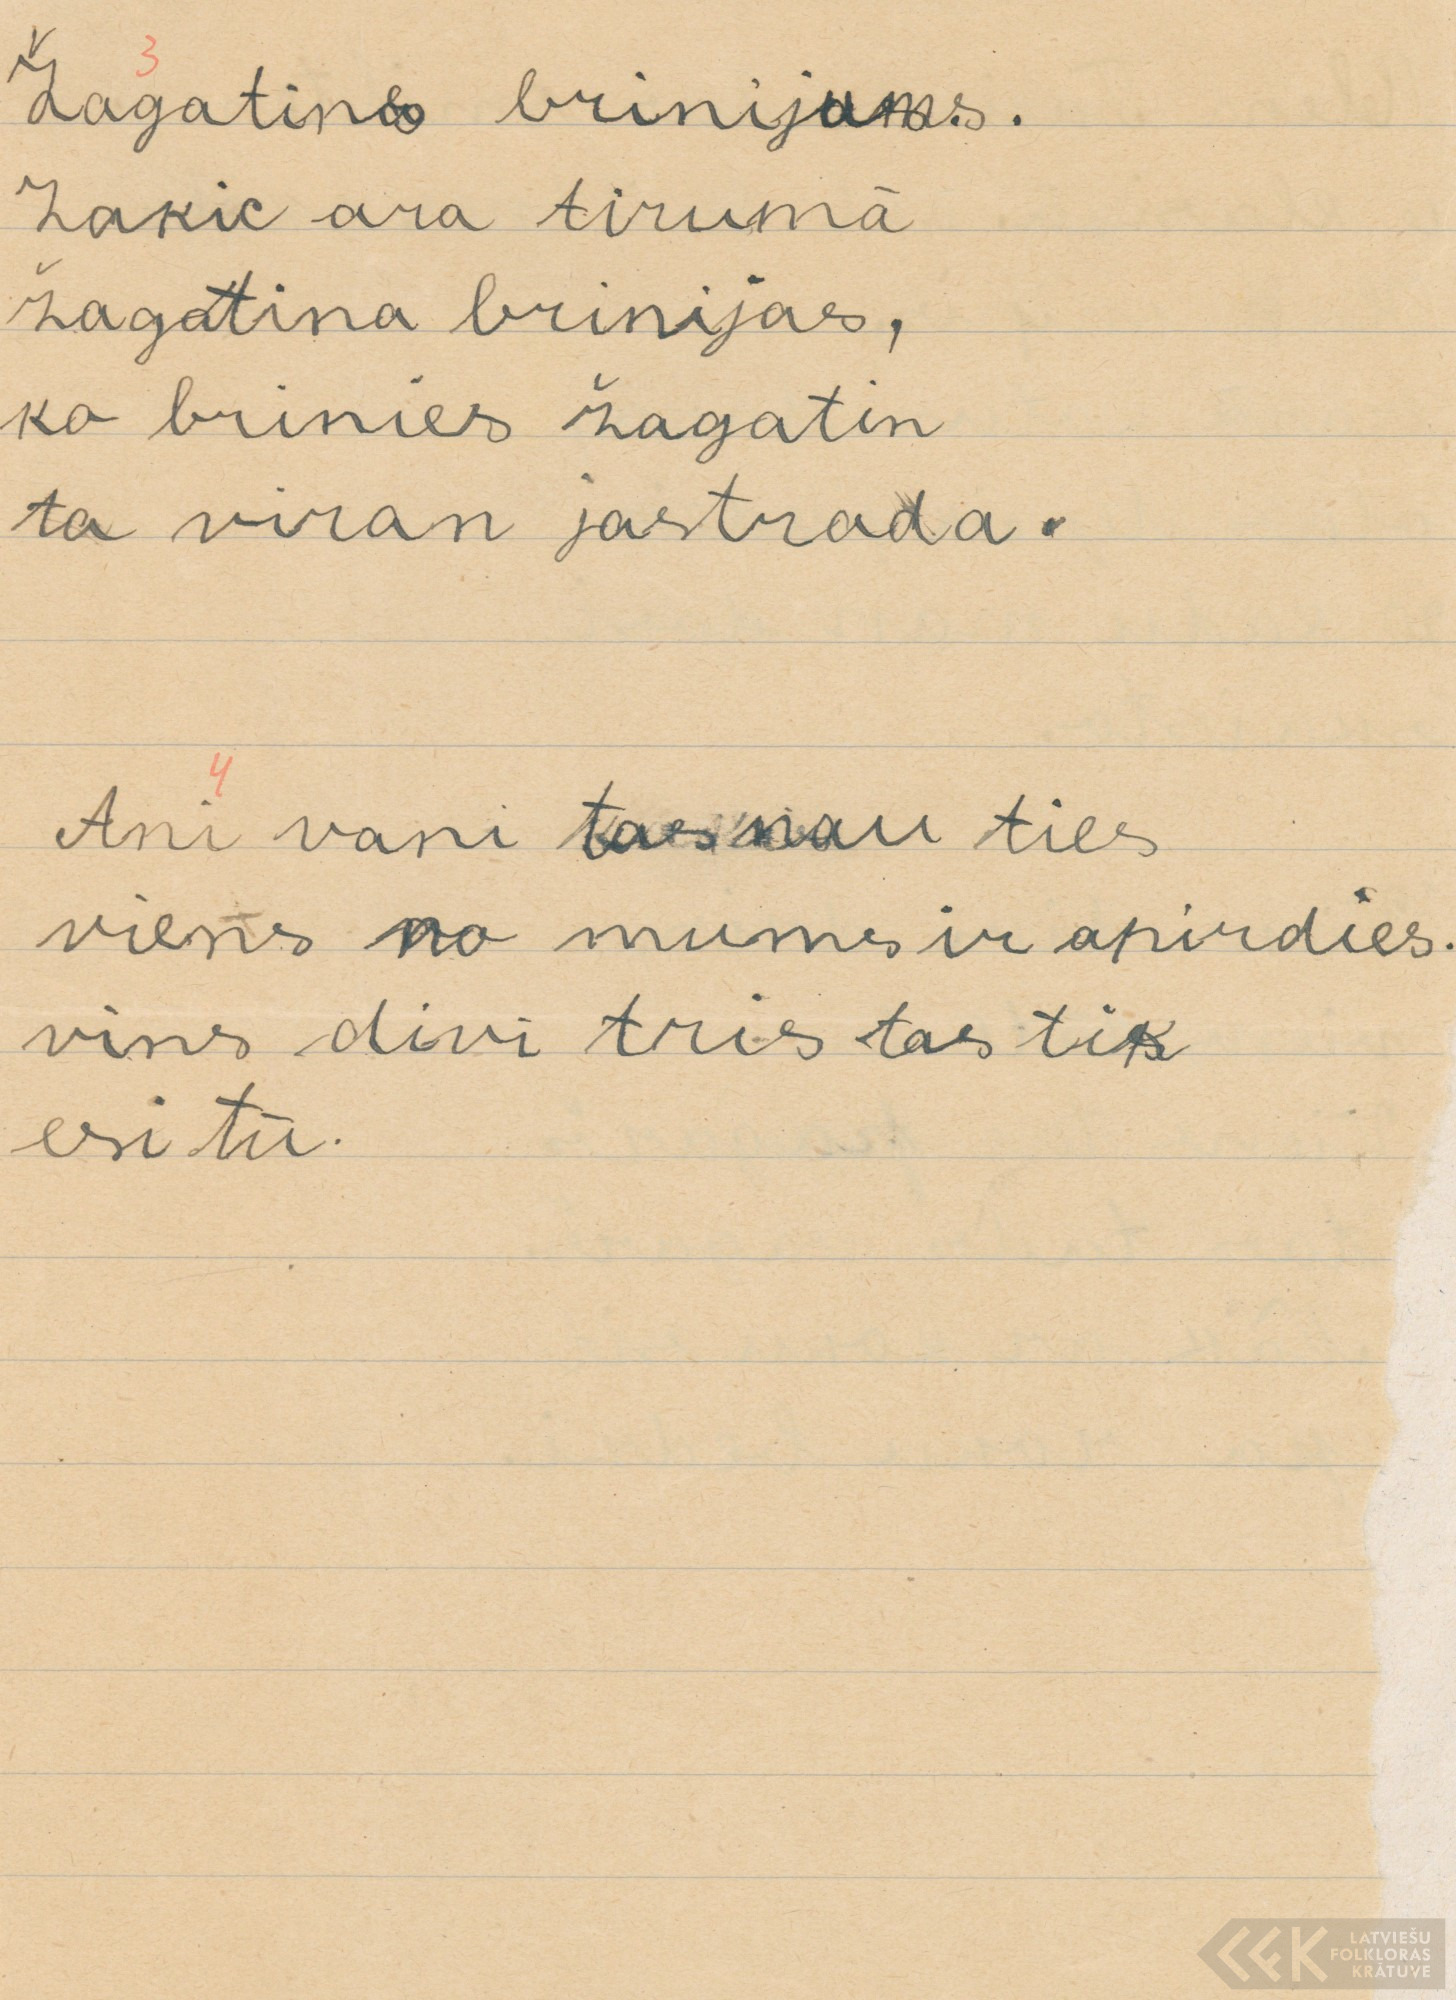 3
Žagatinas brinijums.
Zakic ara tirumā
žagatina brinijas,
ko brinies žagatin
ta viran jastrada.
4
Ani vani tas nau ties
viens no mums ir apirdies.
vins divi tris tas tik
esi tū.
LATVIEŠU
FOLKLORAS
KRĀTUVE